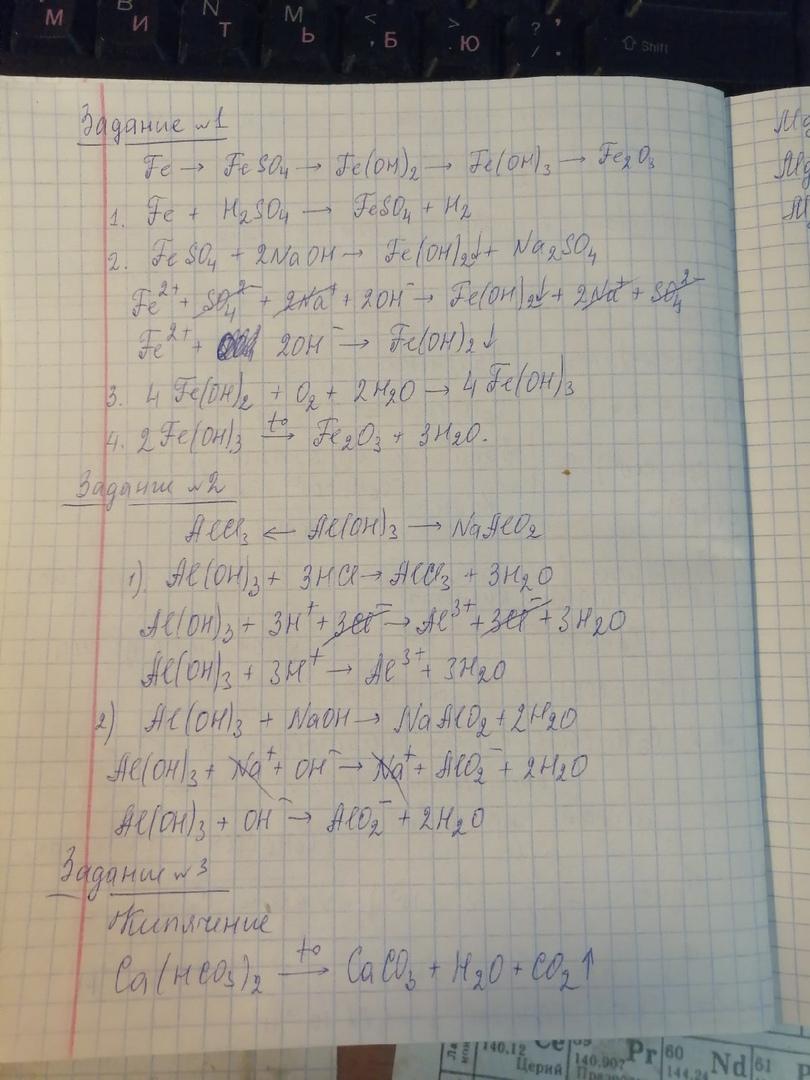 М
И
Т
Ь
< , Б
> . Ю
? /
⇧ Shift
Задание №1
Fe → FeSO₄ → Fe(OH)₂ → Fe(OH)₃ → Fe₂O₃
1. Fe + H₂SO₄ → FeSO₄ + H₂
2. FeSO₄ + 2NaOH → Fe(OH)₂↓ + Na₂SO₄
Fe²⁺ + SO₄²⁻ + 2Na⁺ + 2OH⁻ → Fe(OH)₂↓ + 2Na⁺ + SO₄²⁻
Fe²⁺ + 2OH⁻ → Fe(OH)₂↓
3. 4Fe(OH)₂ + O₂ + 2H₂O → 4Fe(OH)₃
4. 2Fe(OH)₃ →(t°) Fe₂O₃ + 3H₂O.
Задание №2
AlCl₃ ← Al(OH)₃ → NaAlO₂
1). Al(OH)₃ + 3HCl → AlCl₃ + 3H₂O
Al(OH)₃ + 3H⁺ + 3Cl⁻ → Al³⁺ + 3Cl⁻ + 3H₂O
Al(OH)₃ + 3H⁺ → Al³⁺ + 3H₂O
2) Al(OH)₃ + NaOH → NaAlO₂ + 2H₂O
Al(OH)₃ + Na⁺ + OH⁻ → Na⁺ + AlO₂⁻ + 2H₂O
Al(OH)₃ + OH⁻ → AlO₂⁻ + 2H₂O
Задание №3
Кипячение
Ca(HCO₃)₂ →(t°) CaCO₃ + H₂O + CO₂↑
140.12 Ce Церий
140.907 Pr
60 Nd 144.24
61